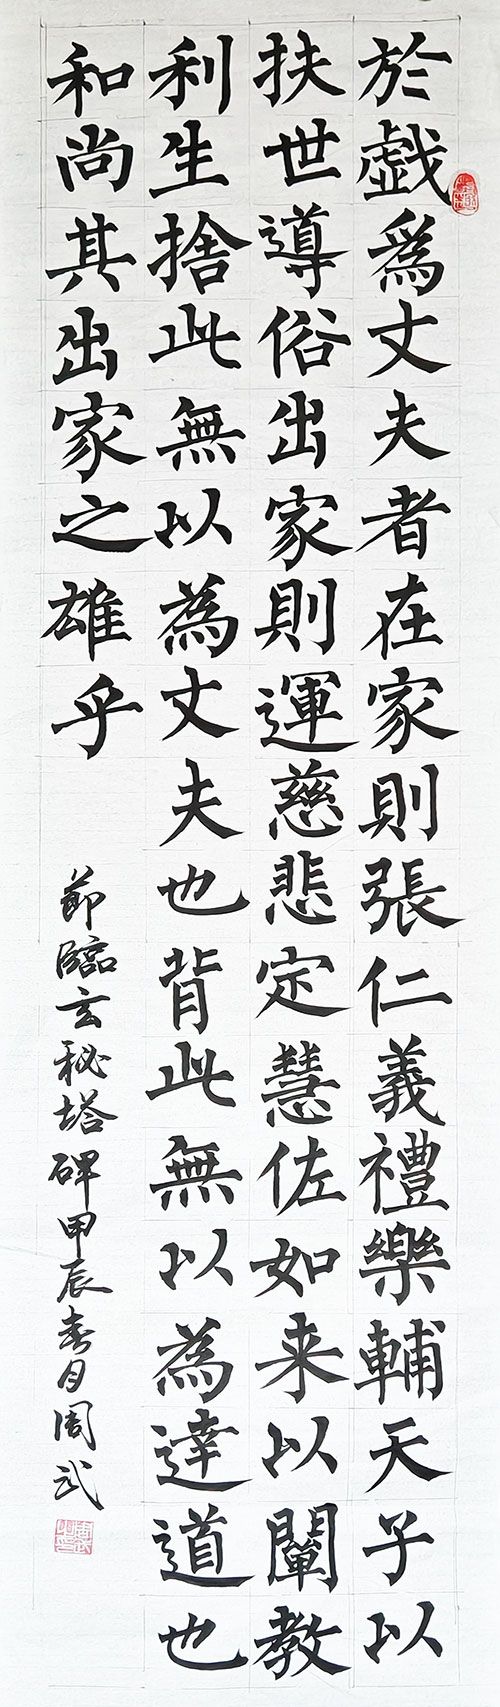 於戲爲丈夫者在家則張仁義禮樂輔天子以
扶世導俗出家則運慈悲定慧佐如来以闡教
利生捨此無以為丈夫也背此無以為達道也
和尚其出家之雄乎
節臨玄秘塔碑甲辰春月周武